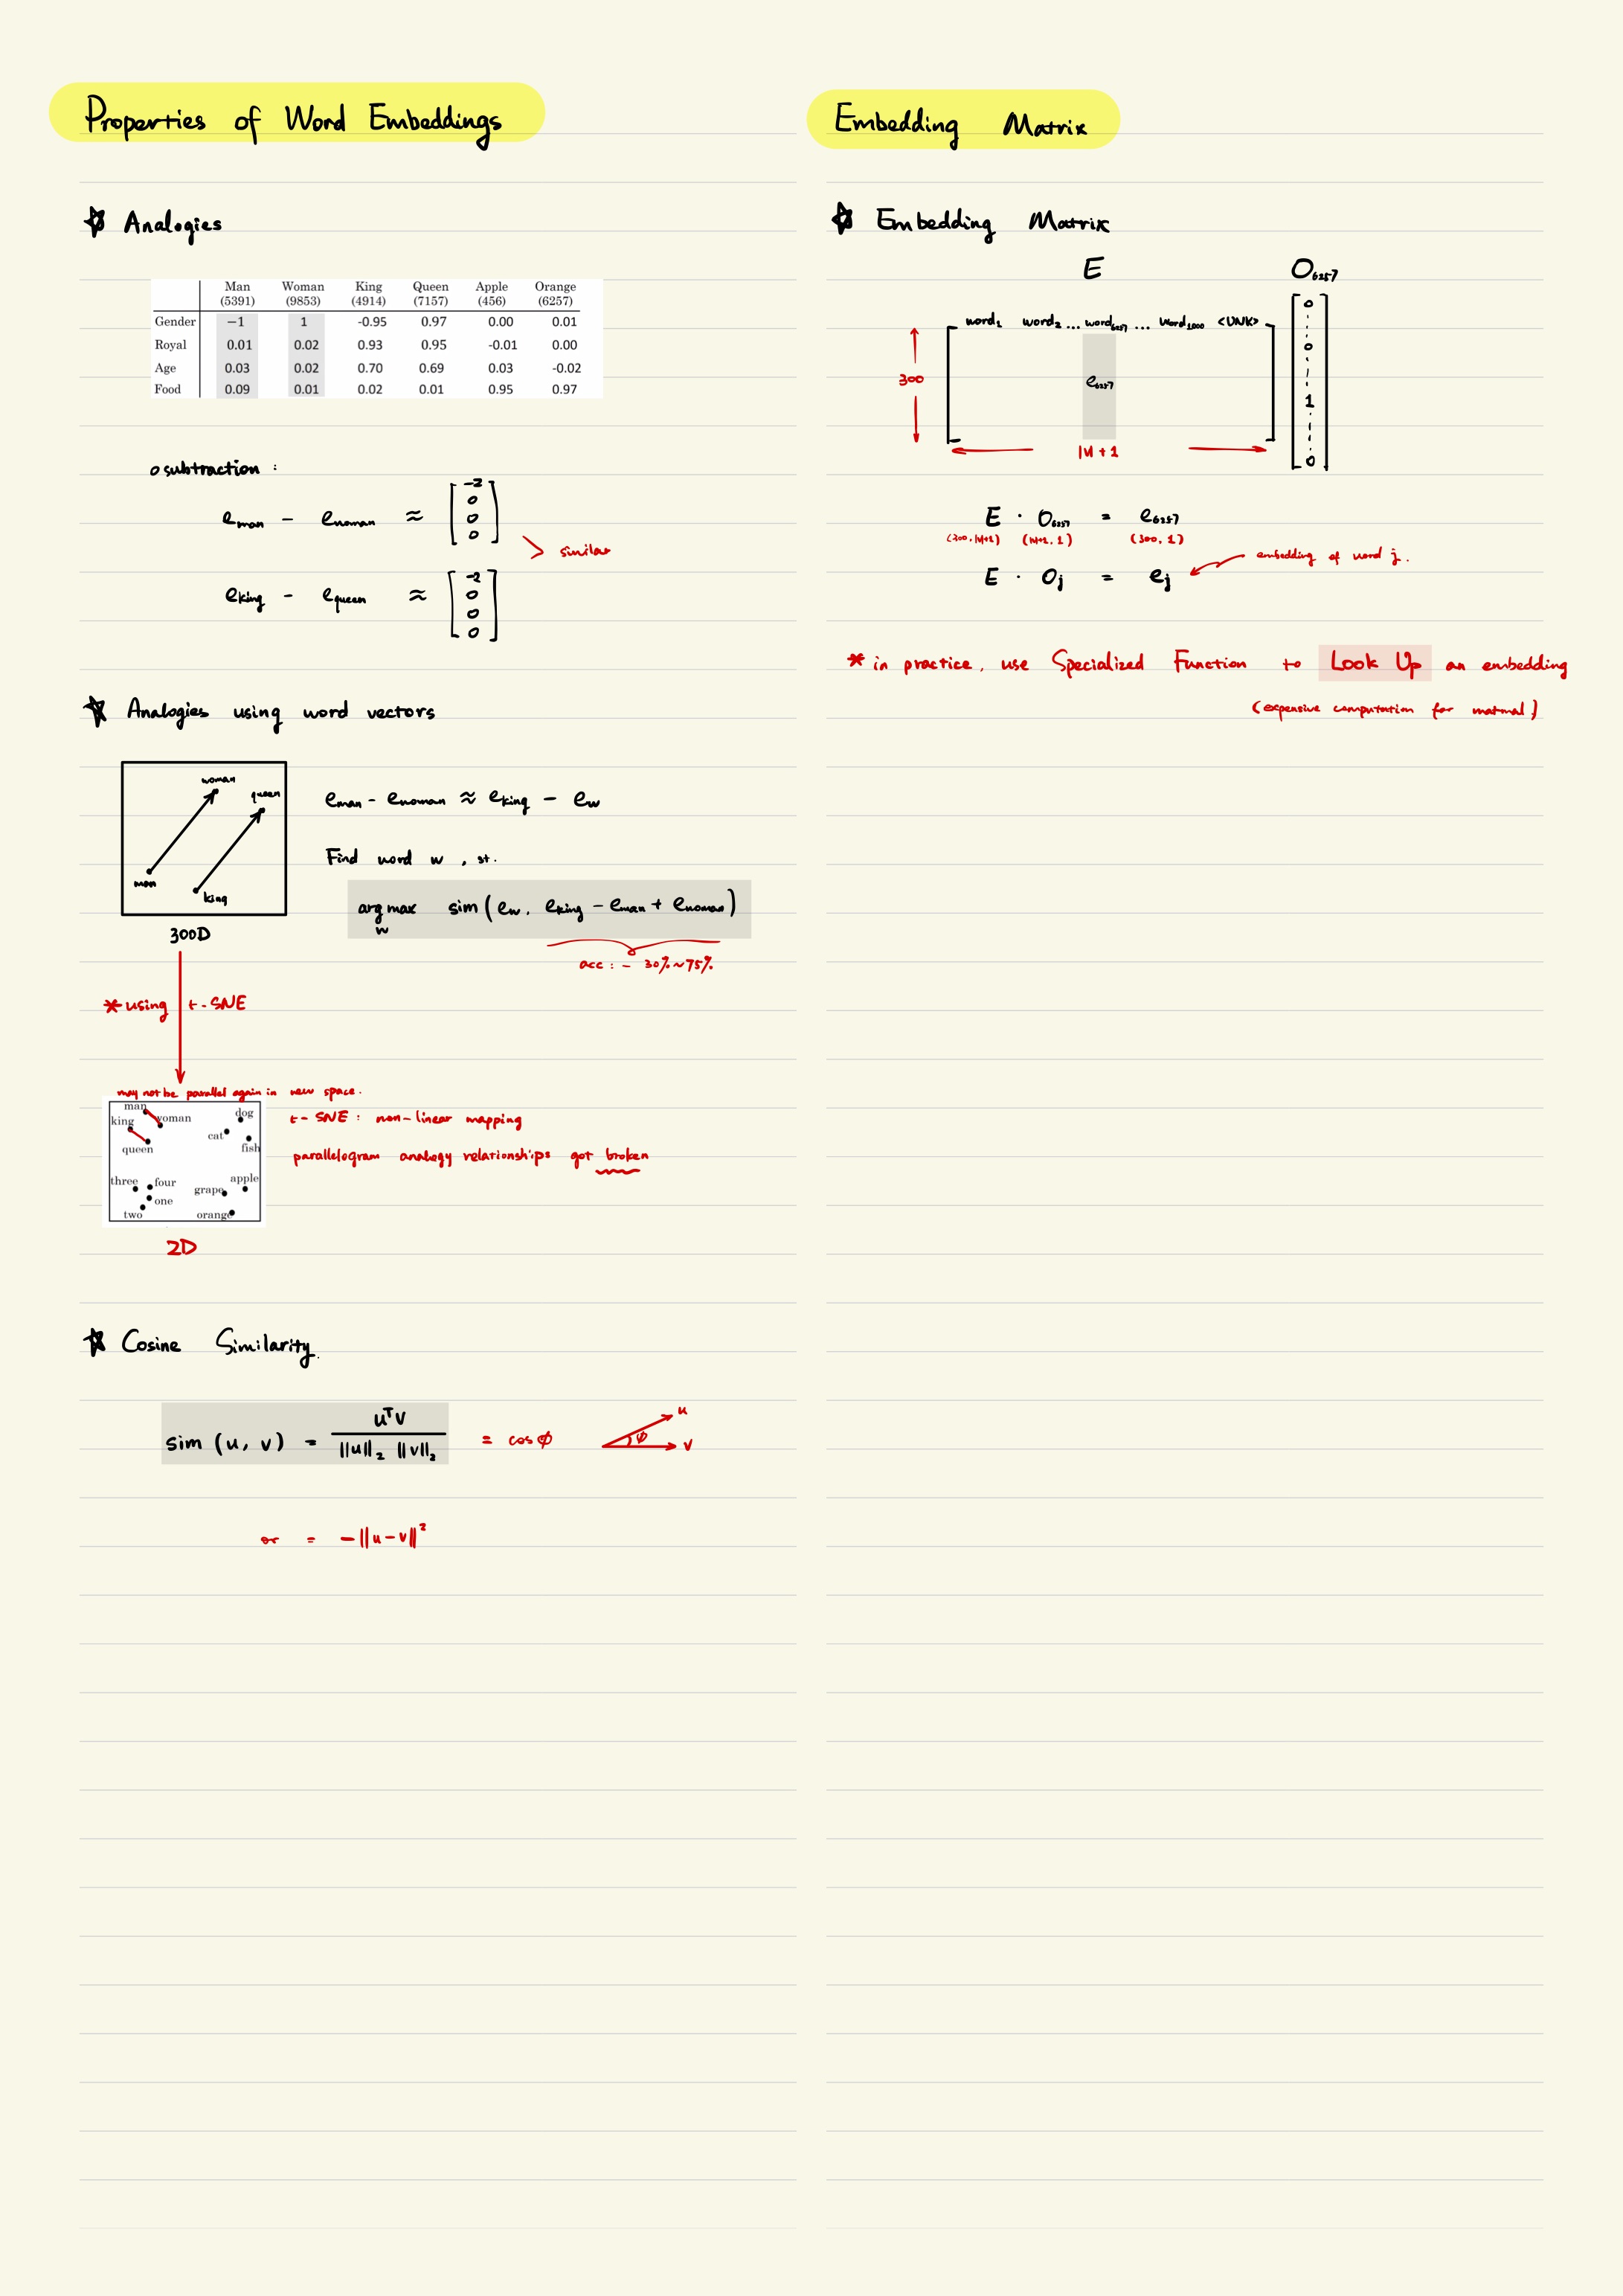 Properties of Word Embeddings
☆ Analogies
Man Woman King Queen Apple Orange
(5391) (9853) (4914) (7157) (456) (6257)
Gender −1 1 -0.95 0.97 0.00 0.01
Royal 0.01 0.02 0.93 0.95 -0.01 0.00
Age 0.03 0.02 0.70 0.69 0.03 -0.02
Food 0.09 0.01 0.02 0.01 0.95 0.97
o subtraction :
e_man − e_woman ≈ [-2 0 0 0]
> similar
e_king − e_queen ≈ [-2 0 0 0]
☆ Analogies using word vectors
woman
queen
man
king
300D
e_man − e_woman ≈ e_king − e_w
Find word w , st.
arg max sim (e_w, e_king − e_man + e_woman)
w
acc : − 30% ~ 75%
* using t-SNE
may not be parallel again in new space.
man
woman
king
queen
dog
cat
fish
three
four
one
two
grape
apple
orange
2D
t-SNE : non-linear mapping
parallelogram analogy relationships got broken
☆ Cosine Similarity.
sim (u, v) = uᵀv / ||u||₂ ||v||₂ = cos ϕ
u
ϕ
v
or = −||u−v||²
Embedding Matrix
☆ Embedding Matrix
E O_6257
word_1 word_2 ... word_6257 ... word_1000 <UNK>
300
e_6257
|V| + 1
0
0
1
0
E · O_6257 = e_6257
(300, |V|+1) (|V|+1, 1) (300, 1)
E · O_j = e_j
embedding of word j.
* in practice, use Specialized Function to Look Up an embedding
(expensive computation for matmal)